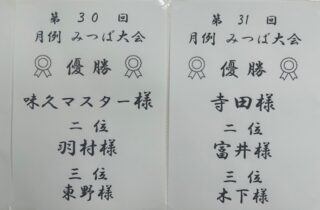 第30回
月例 みつば大会
優勝
味久マスター様
二位
羽村様
三位
東野様
第31回
月例 みつば大会
優勝
寺田様
二位
富井様
三位
木下様